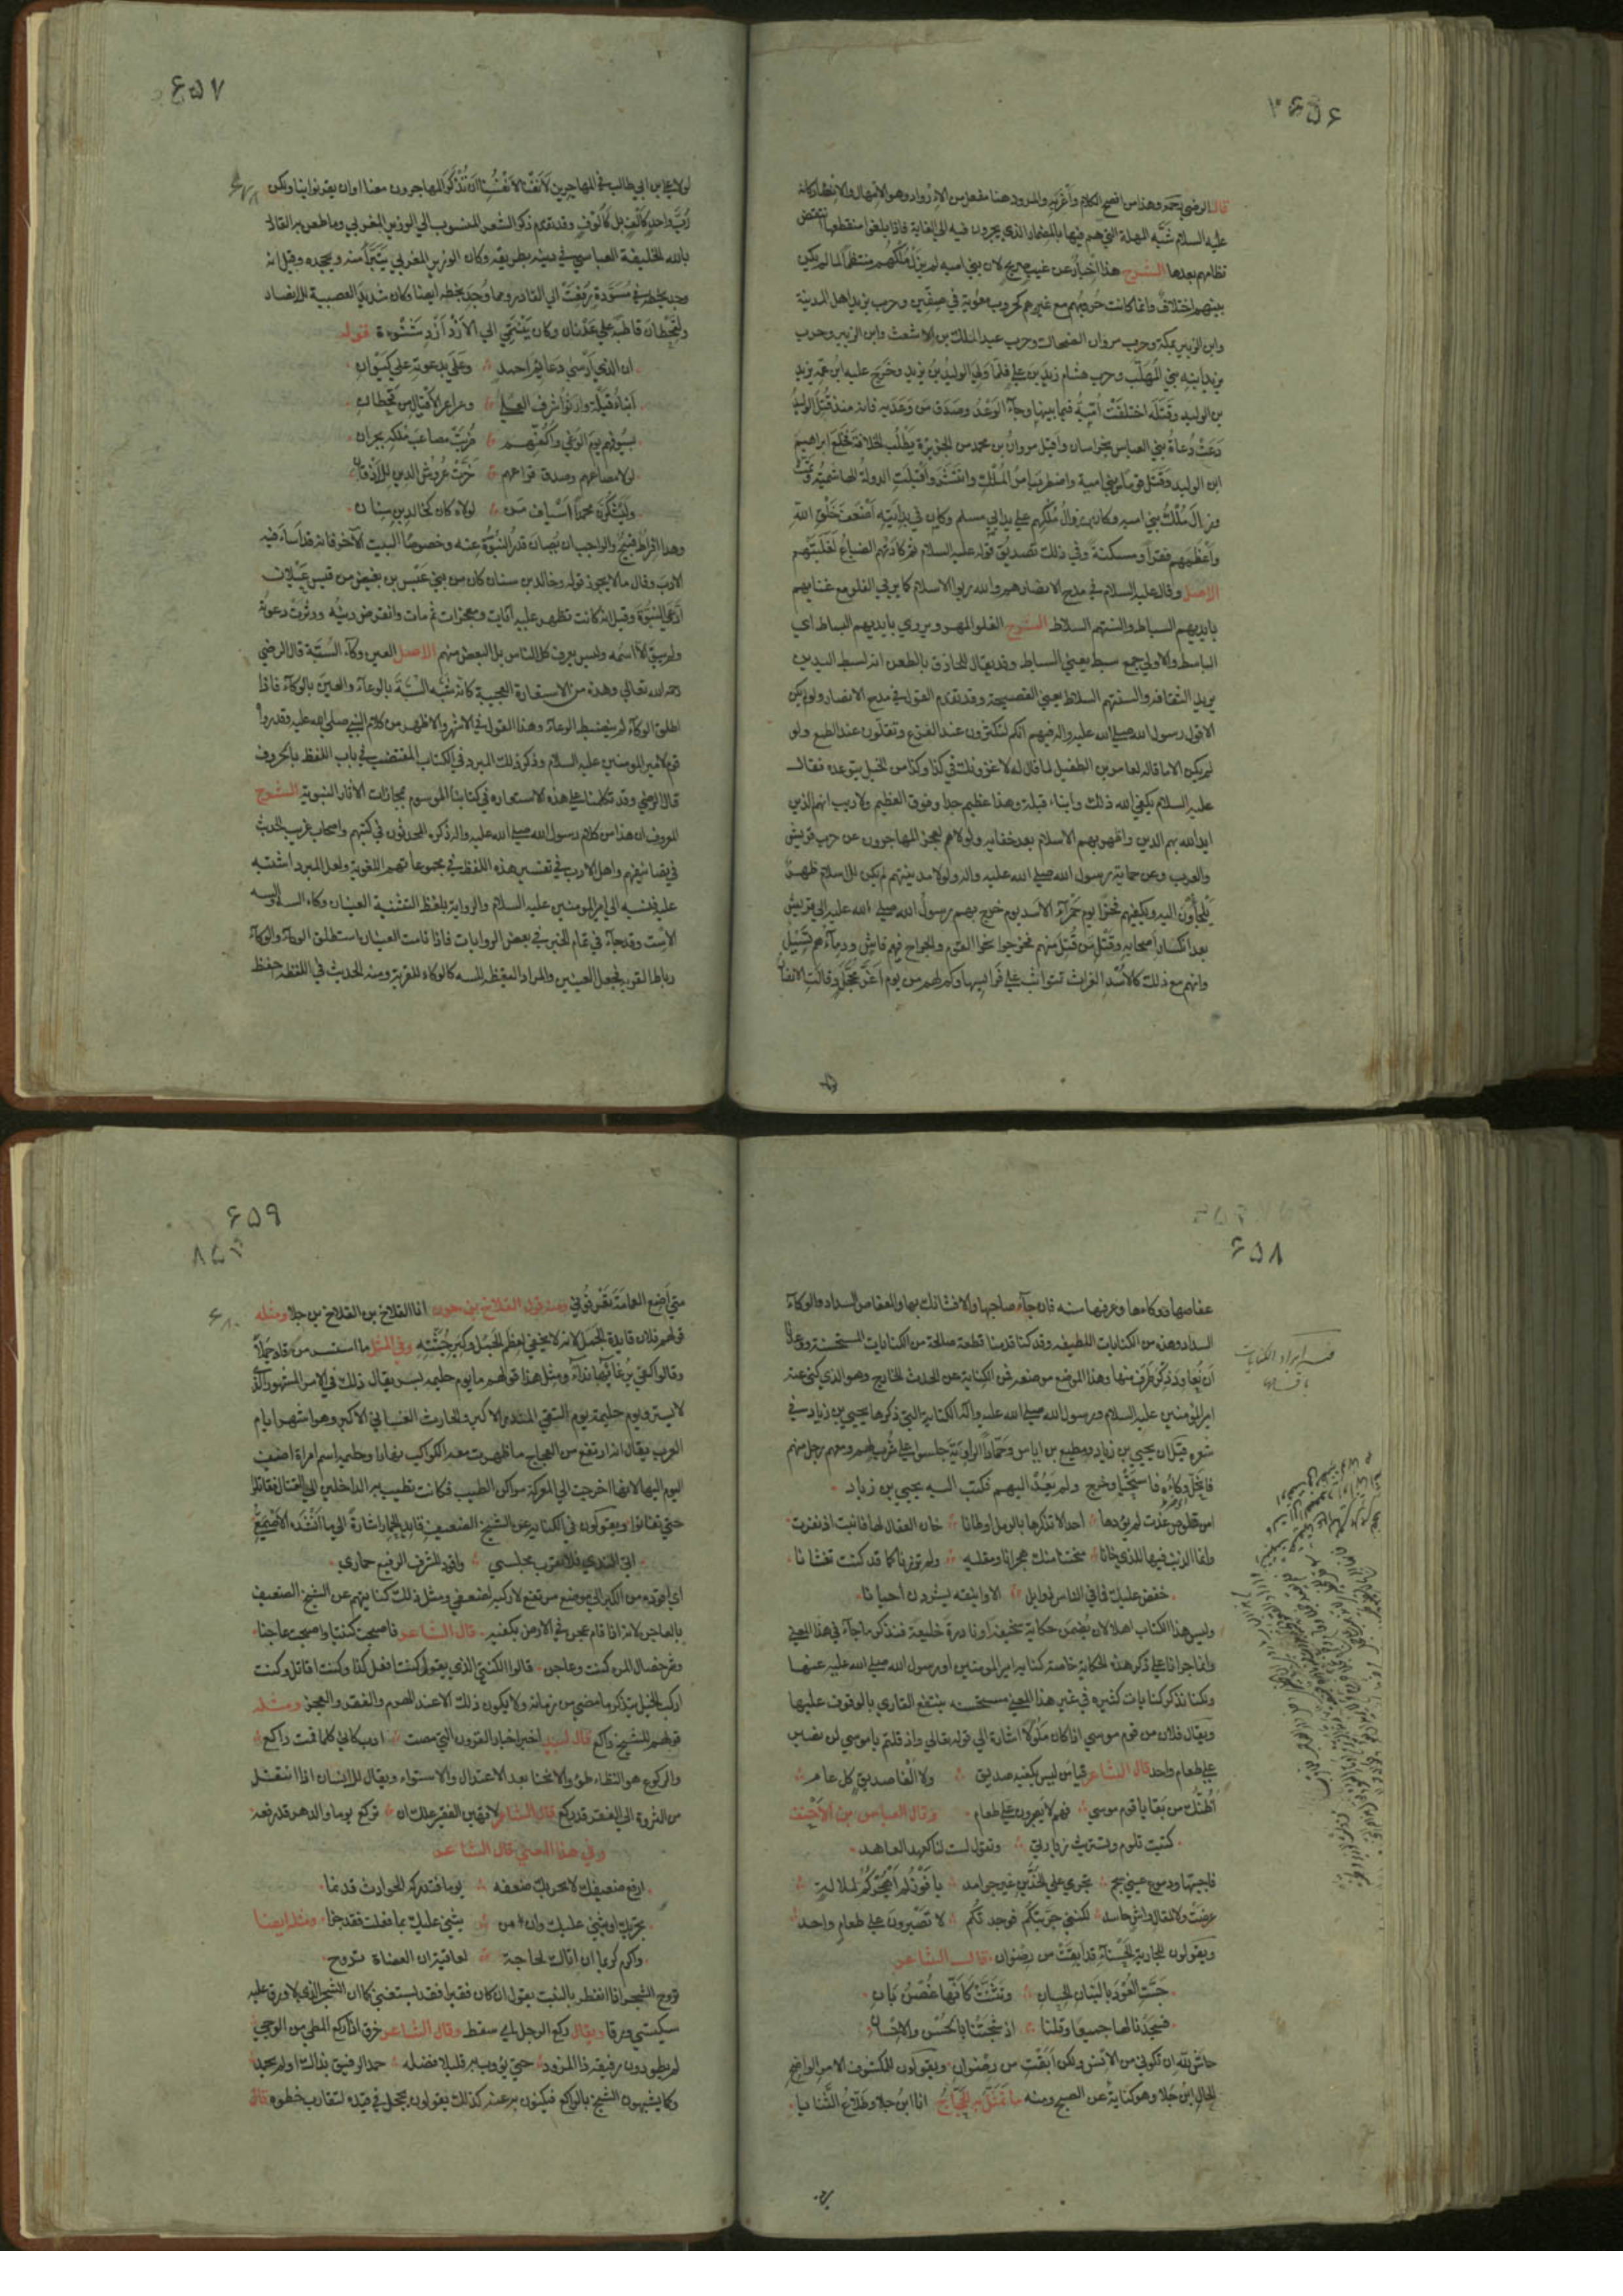 ۶۵۶
قال الرضي رحمه وهذا من افصح الكلام وأغربه والمرود هنا مفعل من الارواد وهو الامهال والانظار كانه
عليه السلام شبّه المهلة التي هم فيها بالمضمار الذي يجرون فيه الى الغاية فاذا بلغوا منقطعها انتقض
نظامهم بعدها الشرح هذا اخبار عن غيب صريح لان بني اميه لم يزل ملكهم منتظما لما لم يكن
بينهم اختلاف وانما كانت حروبهم مع غيرهم كحروب معوية في صفين وحرب يزيد اهل المدينة
وابن الزبير بمكة وحرب مروان الضحاك وحرب عبد الملك بن الاشعث وابن الزبير وحرب
يزيد ابنه بني المهلب وحرب هشام زيد بن علي فلما ولي الوليد بن يزيد وخرج عليه ابن عمه يزيد
بن الوليد وقتله اختلفت اميّة فيما بينها وجآء الوعد وصدق من وعد به فانه منذ قتل الوليد
دعت دعاة بني العباس بخراسان واقبل مروان بن محمد من الجزيرة يطلب الخلافة فخلع ابراهيم
ابن الوليد وقتل قوما من بني امية واضطرب امر الملك وانتشر واقبلت الدولة الهاشمية ونمت
وزال ملك بني اميه وكان زوال ملكهم على يد ابي مسلم وكان في بدايته اضعف خلق الله
وأعظمهم فقرا ومسكنة وفي ذلك تصديق قوله عليه السلام ثم كادتهم الضباع لغلبتهم
الاصل وقال عليه السلام في مدح الانصار هم والله ربوا الاسلام كما يربي الفلو مع غنايهم
بايديهم السباط والسنتهم السلاط الشرح الفلو المهر ويروي بايديهم البساط اي
الباسطة والاولي جمع سبط يعني السماح وقد يقال للحاذق بالطعن انه لسبط اليدين
يريد الثقافة والسنتهم السلاط يعني الفصيحة وقد تقدم القول في مدح الانصار ولو لم يكن
الا قول رسول الله صلى الله عليه واله فيهم انكم لتكثرون عند الفزع وتقلّون عند الطمع ولو
لم يكن الا ما قاله لعامر بن الطفيل لما قال له لاغزونك في كذا وكذا من الخيل يتوعده فقال
عليه السلام يكفي الله ذلك وابناء قيلة وهذا عظيم جدا وفوق العظيم ولا ريب انهم الذين
ايد الله بهم الدين واظهر بهم الاسلام بعد خفايه ولولاهم لعجز المهاجرون عن حرب قريش
والعرب وعن حماية رسول الله صلى الله عليه واله ولولا مدينتهم لم يكن للاسلام ظهر
يلجاؤن اليه ويكفيهم فخرا يوم حمرآء الاسد يوم خرج بهم رسول الله صلى الله عليه الى قريش
بعد انكسار اصحابه وقتل من قتل منهم فخرجوا نحو القوم والجراح فيهم فاش ودمآءهم تسيل
وانهم مع ذلك كالأسد الغراث تتواثب على فرايسها وكم لهم من يوم اغر محجل وقالت الانصار
۶۵۷
لولا علي بن ابي طالب في المهاجرين لأنفنا لأنفسنا ان تذكر المهاجرون معنا او ان يقرنوا بنا ولكن
ربّ واحد كألف بل كألوف وقد تقدم ذكر الشعر المنسوب الي الوزير المغربي وما طعن به القادر
بالله الخليفة العباسي في دينه بطريقه وكان الوزير المغربي يتبرأ منه ويجحده وقيل انه
وجد بخطه في مسودة رفعت الى القادر ومما وجد بخطه ايضا وكان شديد العصبية للانصار
ولقحطان قاطبة على عدنان وكان ينتمي الي الأزد أزد شنوءة قوله
ان الذي ارسى دعايم احمد وعلي بدعوته علي كيوان
ابناء قيلة وارثوا شرف العلى وعراعر الأقيال من قحطان
بسيوفهم يوم الوغي وأكفهم ضربت مصاعب ملكه بجران
لولا مصاعهم وصدق قراعهم خرّت عروش الدين للأذقان
وليشكرن محمدا اسياف من لولاه كان كخالد بن سنان
وهذا افراط قبيح والواجب ان يصان قدر النبوة عنه وخصوصا البيت الآخر فانه قد اساء فيه
الادب وقال ما لا يجوز قوله وخالد بن سنان كان من بني عبس بن بغيض من قيس عيلان
ادّعي النبوّة وقيل انه كانت تظهر عليه آيات ومعجزات ثم مات وانقرض دينه ودثرت دعوته
ولم يبق الا اسمه وليس يعرفه كل الناس بل البعض منهم الاصل العين وكآء السّتة قال الرضي
رحمه الله تعالي وهذه من الاستعارة العجيبة كانه شبه السّتة بالوعآء والعين بالوكآء فاذا
اطلق الوكآء لم ينضبط الوعاء وهذا القول في الاشهر والاظهر من كلام النبي صلى الله عليه وقد رواه
قوم لامير المومنين عليه السلام وذكر ذلك المبرد في الكتاب المقتضب في باب اللفظ بالحروف
قال الرضي وقد تكلمنا على هذه الاستعارة في كتابنا الموسوم بمجازات الآثار النبوية الشرح
المعروف ان هذا من كلام رسول الله صلى الله عليه واله ذكره المحدثون في كتبهم واصحاب غريب الحديث
في تصانيفهم واهل الادب في تفسير هذه اللفظة في مجموعاتهم اللغوية ولعل المبرد اشتبه
عليه فنسبه الي امير المومنين عليه السلام والرواية بلفظ التثنية العينان وكاء السه والسه
الاست وقد جآء في تمام الخبر في بعض الروايات فاذا نامت العينان استطلق الوكآء والوكآء
رباط القربة فجعل العينين والمراد اليقظة للسه كالوكاء للقربة ومنه الحديث في اللقطة احفظ
۶۵۸
عفاصها ووكاءها وعرفها سنه فان جآء صاحبها والا فشانك بها والعفاص السداد والوكآء
السداد وهذه من الكنايات اللطيفة وقد كنا قدمنا قطعة صالحة من الكنايات المستحسنة ووعدنا
ان نعاود ذكر طرف منها وهذا الموضع موضعه فمن الكناية عن الحدث الخارج وهو الذي كنى عنه
امير المومنين عليه السلام او رسول الله صلى الله عليه واله الكناية التي ذكرها يحيى بن زياد في
شعره قيل ان يحيي بن زياد ومطيع بن اياس وحمادا الراوية جلسوا على شرب لهم ومعهم رجل منهم
فانحل وكاؤه فاستحيا وخرج ولم يعد اليهم فكتب اليه يحيى بن زياد
امن قلوص غدت لم يؤذها احد الا تذكرها بالرمل اوطانا خان العقال لها فانبت اذ نفرت
وانما الذنب فيها للذي خانا منحتنا منك هجرانا ومقليه ولم تزرنا كما قد كنت تغشانا
خفض عليك فما في الناس ذو ابل الا وانيقه يشردن احيانا
وليس هذا الكتاب اهلا لان يضمن حكاية سخيفة او نادرة خليعة فنذكر ما جآء في هذا المعني
وانما جرانا علي ذكر هذه الحكاية خاصة كناية امير المومنين او رسول الله صلى الله عليه عنها
ولكنا نذكر كنايات كثيره في غير هذا المعني مستحسنه ينتفع القاري بالوقوف عليها
ويقال فلان من قوم موسي اذا كان ملولا اشارة الى قوله تعالي واذ قلتم يا موسي لن نصبر
علي طعام واحد قال الشاعر فيا من ليس يكفيه صديق ولا الفا صديق كل عام
اظنك من بقايا قوم موسي فهم لا يصبرون علي طعام وقال العباس بن الأحنف
كتبت تلوم وتستريث زيارتي وتقول لست لنا كعهد العاهد
فاجبتها ودموع عيني سجم تجري علي الخدين غير جوامد يا فوز لم اهجركم لملالة
عرضت ولا لمقال واش حاسد لكنني جربتكم فوجدتكم لا تصبرون علي طعام واحد
ويقولون للجارية الحسنآء قد ابقت من رضوان قال الشاعر
جست العود بالبنان الحسان وتثنت كأنها غصن بان
فسجدنا لها جميعا وقلنا اذ شجتنا بالحسن والاحسان
حاش لله ان تكوني من الانس ولكن ابقت من رضوان ويقولون للمكشوف الامر الواضح
الحال ابن جلا وهو كناية عن الصبح ومنه ما تمثل به الحجّاج انا ابن جلا وطلاع الثنايا
۶۵۹
متي أضع العمامة تعرفوني ومنه قول القلاخ بن حزن انا القلاخ بن القلاخ بن جلا ومثله
قولهم فلان قايد الجمل لانه لا يخفي لعظم الجمل وكبر جثته وفي المثل ما استتر من قاد جملا
وقالوا كفي برغآئها ندآء ومثل هذا قولهم ما يوم حليمة بسر يقال ذلك في الامر المشهور الذي
لا يستر ويوم حليمة يوم التقي المنذر الاكبر والحارث الغساني الاكبر وهو اشهر ايام
العرب يقال انه ارتفع من العجاج ما ظهرت معه الكواكب نهارا وحليمه اسم امراة اضيف
اليوم اليها لانها اخرجت الي المعركة مراكن الطيب فكانت تطيب به الداخلين الى القتال فقاتلوا
حتي تفانوا ويقولون في الكناية عن الشيخ الضعيف قايد الحمار اشارة الي ما انشده الاصمعي
اتي الندي فلا يقرب مجلسي واقود للشرف الرفيع حماري
اي اقوده من الكبر الي موضع مرتفع لاركبه لضعفي ومثل ذلك كنايتهم عن الشيخ الضعيف
بالعاجن لانه اذا قام عجن في الارض بكفيه قال الشاعر فاصبحت كنتيا واصبحت عاجنا
وشر خصال المرء كنت وعاجن قالوا الكنتي الذي يقول كنت افعل كذا وكنت اقاتل وكنت
اركب الخيل يتذكر ما مضي من زمانه ولا يكون ذلك الا عند الهرم والفقر والعجز ومثله
قولهم للشيخ راكع قال لبيد اخبر اخبار القرون التي مضت ادب كاني كلما قمت راكع
والركوع هو التطاطؤ والانحنا بعد الاعتدال والاستواء ويقال للانسان اذا انتقل
من الثروة الي الفقر قد ركع قال الشاعر لا تهين الفقير علك ان تركع يوما والدهر قد رفعه
وفي هذا المعني قال الشاعر
ارفع ضعيفك لا يحربك ضعفه يوما فتدركه الحوادث قد نما
يجزيك او يثني عليك وان من يثني عليك بما فعلت فقد جزا ومثله ايضا
واكرم كريما ان اتاك لحاجة لعاقبة ان العضاة تروح
تروح الشجر اذا انفطر بالنبت يقول ان كان فقيرا فقد يستغني كما ان الشجر الذي لا ورق عليه
سيكتسي ورقا ويقال ركع الرجل اي سقط وقال الشاعر خرق اذا ركع المطي من الوجي
لم يطو دون رفيقه ذا المزود حتي يؤوب به قليلا فضله حمد الرفيق نداك او لم يحمد
وكما يشبهون الشيخ بالراكع فيكنون به عنه كذلك يقولون يحجل في قيده لتقارب خطوه قال